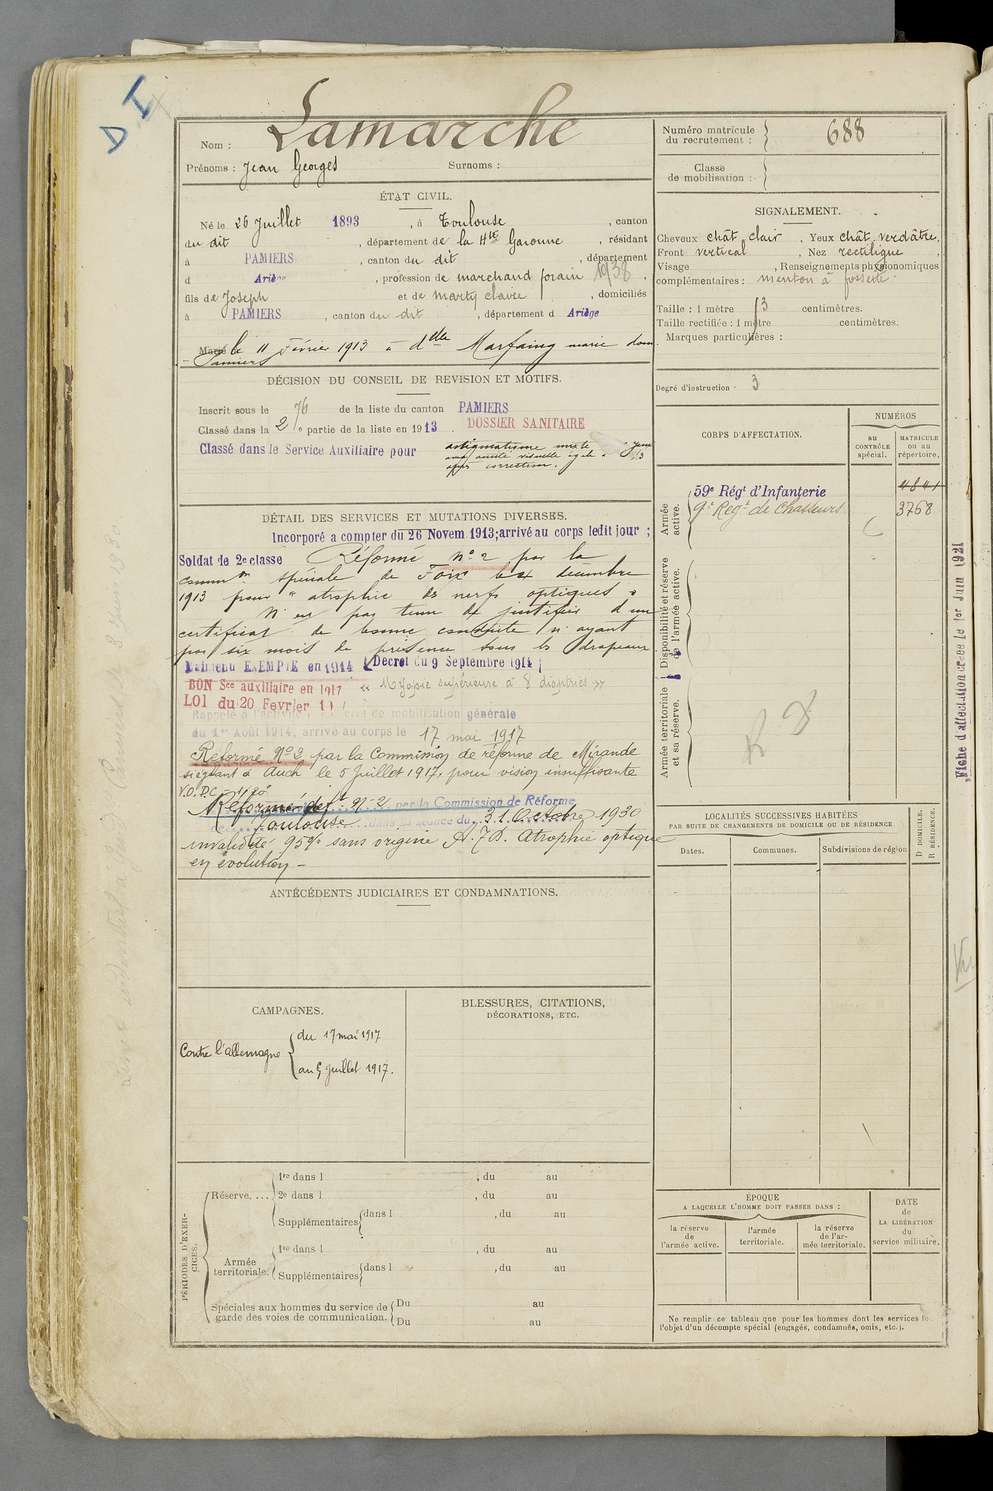 D I
Nom : Lamarche
Prénoms : Jean Georges Surnoms :
Numéro matricule du recrutement : 688
Classe de mobilisation :
ÉTAT CIVIL.
Né le 26 Juillet 1893, à Toulouse, canton
du dit, département de la Hte Garonne, résidant
à PAMIERS, canton du dit, département
d Ariège, profession de marchand forain 1938.
fils de Joseph et de Marty claire, domiciliés
à PAMIERS, canton du dit, département d Ariège
Marié le 11 Février 1913 à delle Marfaing marie
Pamiers
SIGNALEMENT.
Cheveux chât clair, Yeux chât verdâtre,
Front vertical, Nez rectiligne,
Visage , Renseignements physionomiques
complémentaires : menton à fossette
Taille : 1 mètre centimètres.
Taille rectifiée : 1 mètre centimètres.
Marques particulières :
Degré d'instruction · 3
DÉCISION DU CONSEIL DE REVISION ET MOTIFS.
Inscrit sous le 76 de la liste du canton PAMIERS
Classé dans la 2e partie de la liste en 1913. DOSSIER SANITAIRE
Classé dans le Service Auxiliaire pour astigmatisme mixte
après correction.
CORPS D'AFFECTATION.
NUMÉROS
au CONTRÔLE spécial.
MATRICULE ou au répertoire.
Armée active.
59e Régt d'Infanterie 4841
9e Régt de Chasseurs 3768
Disponibilité et réserve de l'armée active.
Armée territoriale et sa réserve.
Fiche d'affectation créée le 1er Juin 1921
DÉTAIL DES SERVICES ET MUTATIONS DIVERSES.
Incorporé a compter du 26 Novem. 1913; arrivé au corps ledit jour;
Soldat de 2e classe Réformé no 2 par la
common spéciale de Foix le décembre
1913 pour « atrophie des nerfs optiques »
N'est pas tenu de justifier d'un
certificat de bonne conduite n'ayant
pas six mois de présence sous les drapeaux
Maintenu EXEMPTÉ en 1914 (Décret du 9 Septembre 1914)
BON Sce auxiliaire en 1917 « Myopie supérieure à 8 dioptries »
LOI du 20 Fevrier 1917
Rappelé à l'activité de mobilisation générale
du 1er Août 1914, arrivé au corps le 17 mai 1917
Réformé No 2 par la Commission de réforme de Mirande
siégeant à Auch le 5 Juillet 1917, pour vision insuffisante
Réformé deft No 2 par la Commission de Réforme
Toulouse dans sa séance du 31 Octobre 1930
invalidité 95% sans origine Atrophie optique
en évolution -
LOCALITÉS SUCCESSIVES HABITÉES
PAR SUITE DE CHANGEMENTS DE DOMICILE OU DE RÉSIDENCE
D DOMICILE. R RÉSIDENCE.
Dates. Communes. Subdivisions de région
ANTÉCÉDENTS JUDICIAIRES ET CONDAMNATIONS.
CAMPAGNES.
Contre l'allemagne du 17 mai 1917
au 5 juillet 1917.
BLESSURES, CITATIONS,
DÉCORATIONS, ETC.
PÉRIODES D'EXERCICES.
Réserve.... 1re dans l , du au
2e dans l , du au
Supplémentaires dans l , du au
Armée territoriale. 1re dans l , du au
Supplémentaires dans l , du au
Spéciales aux hommes du service de garde des voies de communication. Du au
Du au
ÉPOQUE
A LAQUELLE L'HOMME DOIT PASSER DANS :
la réserve de l'armée active.
l'armée territoriale.
la réserve de l'armée territoriale.
DATE de LA LIBÉRATION du service militaire.
Ne remplir ce tableau que pour les hommes dont les services
l'objet d'un décompte spécial (engagés, condamnés, omis, etc.).